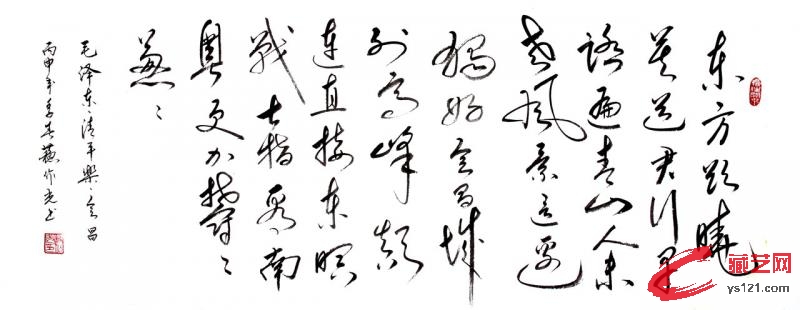 东方欲曉
莫道君行早
踏遍青山人未
老風景这邊
獨好会昌城
外高峰颠
连直接东溟
戰士指看南
粤更加鬱〻
葱〻
毛泽东·清平樂·会昌
丙申年季春 作光书
藏艺网
ys121.com